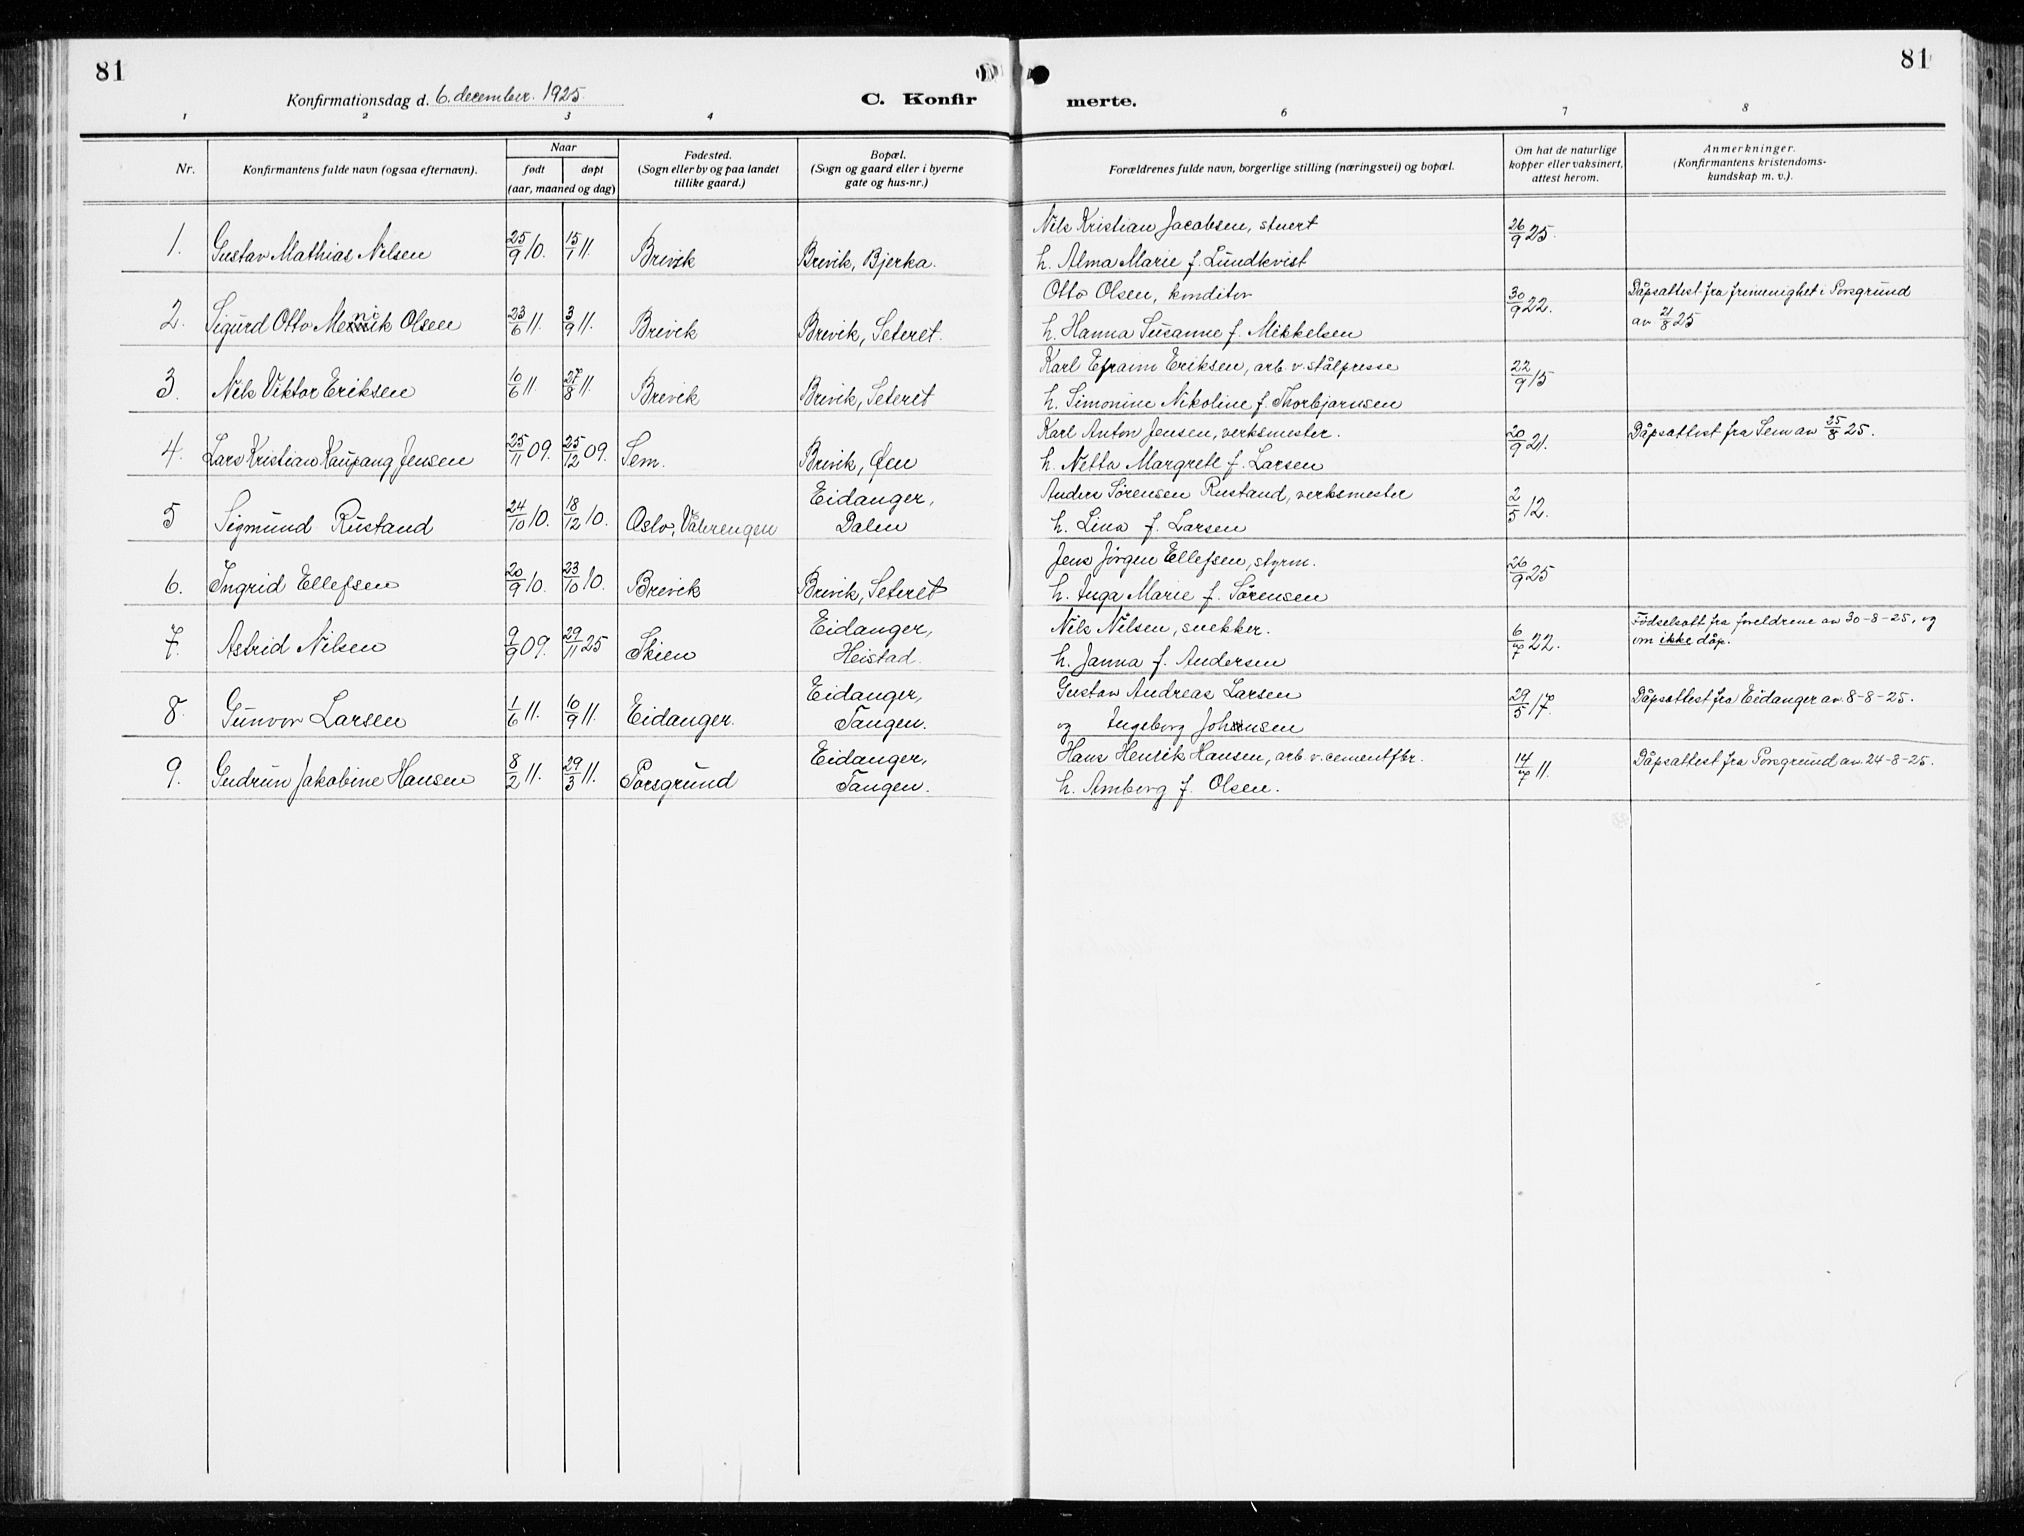 81
81
Konfirmationsdag d. 6. december. 1925.
C. Konfir
merte.
1 2 3 4 6 7 8
Nr.
Konfirmantens fulde navn (ogsaa efternavn).
Naar
født
døpt
(aar, maaned og dag)
Fødested.
(Sogn eller by og paa landet
tillike gaard.)
Bopæl.
(Sogn og gaard eller i byerne
gate og hus-nr.)
Forældrenes fulde navn, borgerlige stilling (næringsvei) og bopæl.
Om hat de naturlige
kopper eller vaksinert,
attest herom.
Anmerkninger.
(Konfirmantens kristendoms-
kundskap m. v.).
1. Gustav Mathias Nilsen 25/9 10. 15/1 11. Brevik Brevik, Bjerka. Nils Kristian Jacobsen, stuert 26/9 25.
h. Alma Marie f. Lundkvist
2. Sigurd Otto Olsen 23/6 11. 3/9 11. Brevik Brevik, Seteret. Otto Olsen, konditor 30/9 22. Dåpsattest fra frimenighet i Porsgrund
h. Hanna Susanne f. Mikkelsen av 21/8 25
3. Nils Viktor Eriksen 10/6 11. 27/8 11. Brevik Brevik, Seteret Karl Efraim Eriksen, arb. v. stålpresse 22/9 15
h. Simonine Nikoline f. Thorbjørnsen
4. Lars Kristian Kaupang Jensen 25/11 09. 25/12 09. Sem. Brevik, Øen Karl Anton Jensen, verksmester. 20/9 21. Dåpsattest fra Sem av 25/8 25.
h. Netta Margrete f. Larsen
5 Sigmund Rustand 24/10 10. 18/12 10. Oslo, Vålerengen Eidanger, Anders Sørensen Rustand, verksmester 2/5 12.
Dalen h. Lina f. Larsen
6. Ingrid Ellefsen 20/9 10. 23/10 10. Brevik Brevik, Seteret Jens Jørgen Ellefsen, styrm. 26/9 25
h. Inga Marie f. Sørensen
7. Astrid Nilsen 9/9 09. 29/11 25 Skien Eidanger, Nils Nilsen, snekker. 6/7 22. Fødselsatt fra foreldrene av 30-8-25, og
Heistad. h. Janna f. Andersen om ikke dåp.
8. Gunvor Larsen 1/6 11. 10/9 11. Eidanger. Eidanger, Gustav Andreas Larsen 29/5 17. Dåpsattest fra Eidanger av 8-8-25.
Tangen. og Ingeborg Johansen
9. Gudrun Jakobine Hansen 8/2 11. 29/3 11. Porsgrund Eidanger, Hans Henrik Hansen, arb. v. cementfbr. 14/7 11. Dåpsattest fra Porsgrund av 24-8-25.
Tangen. h. Amborg f. Olsen.